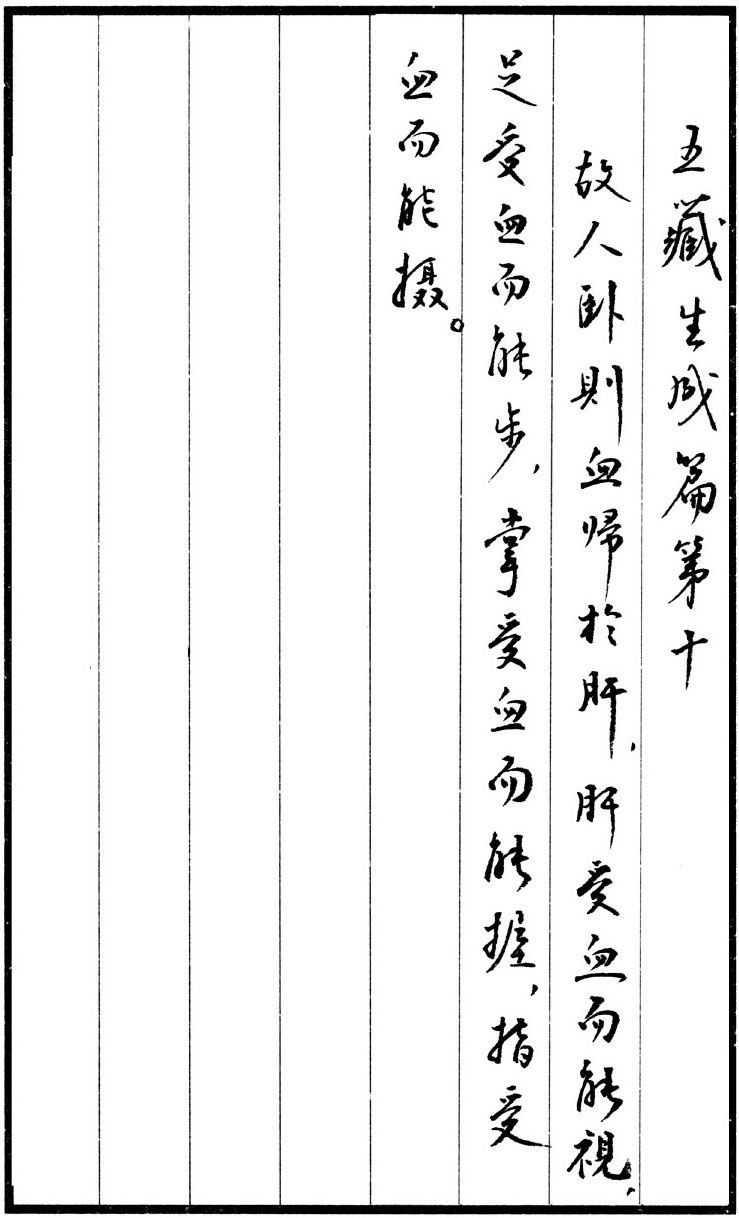 五藏生成篇第十
故人卧則血归於肝，肝受血而能視，
足受血而能步，掌受血而能握，指受
血而能摄。